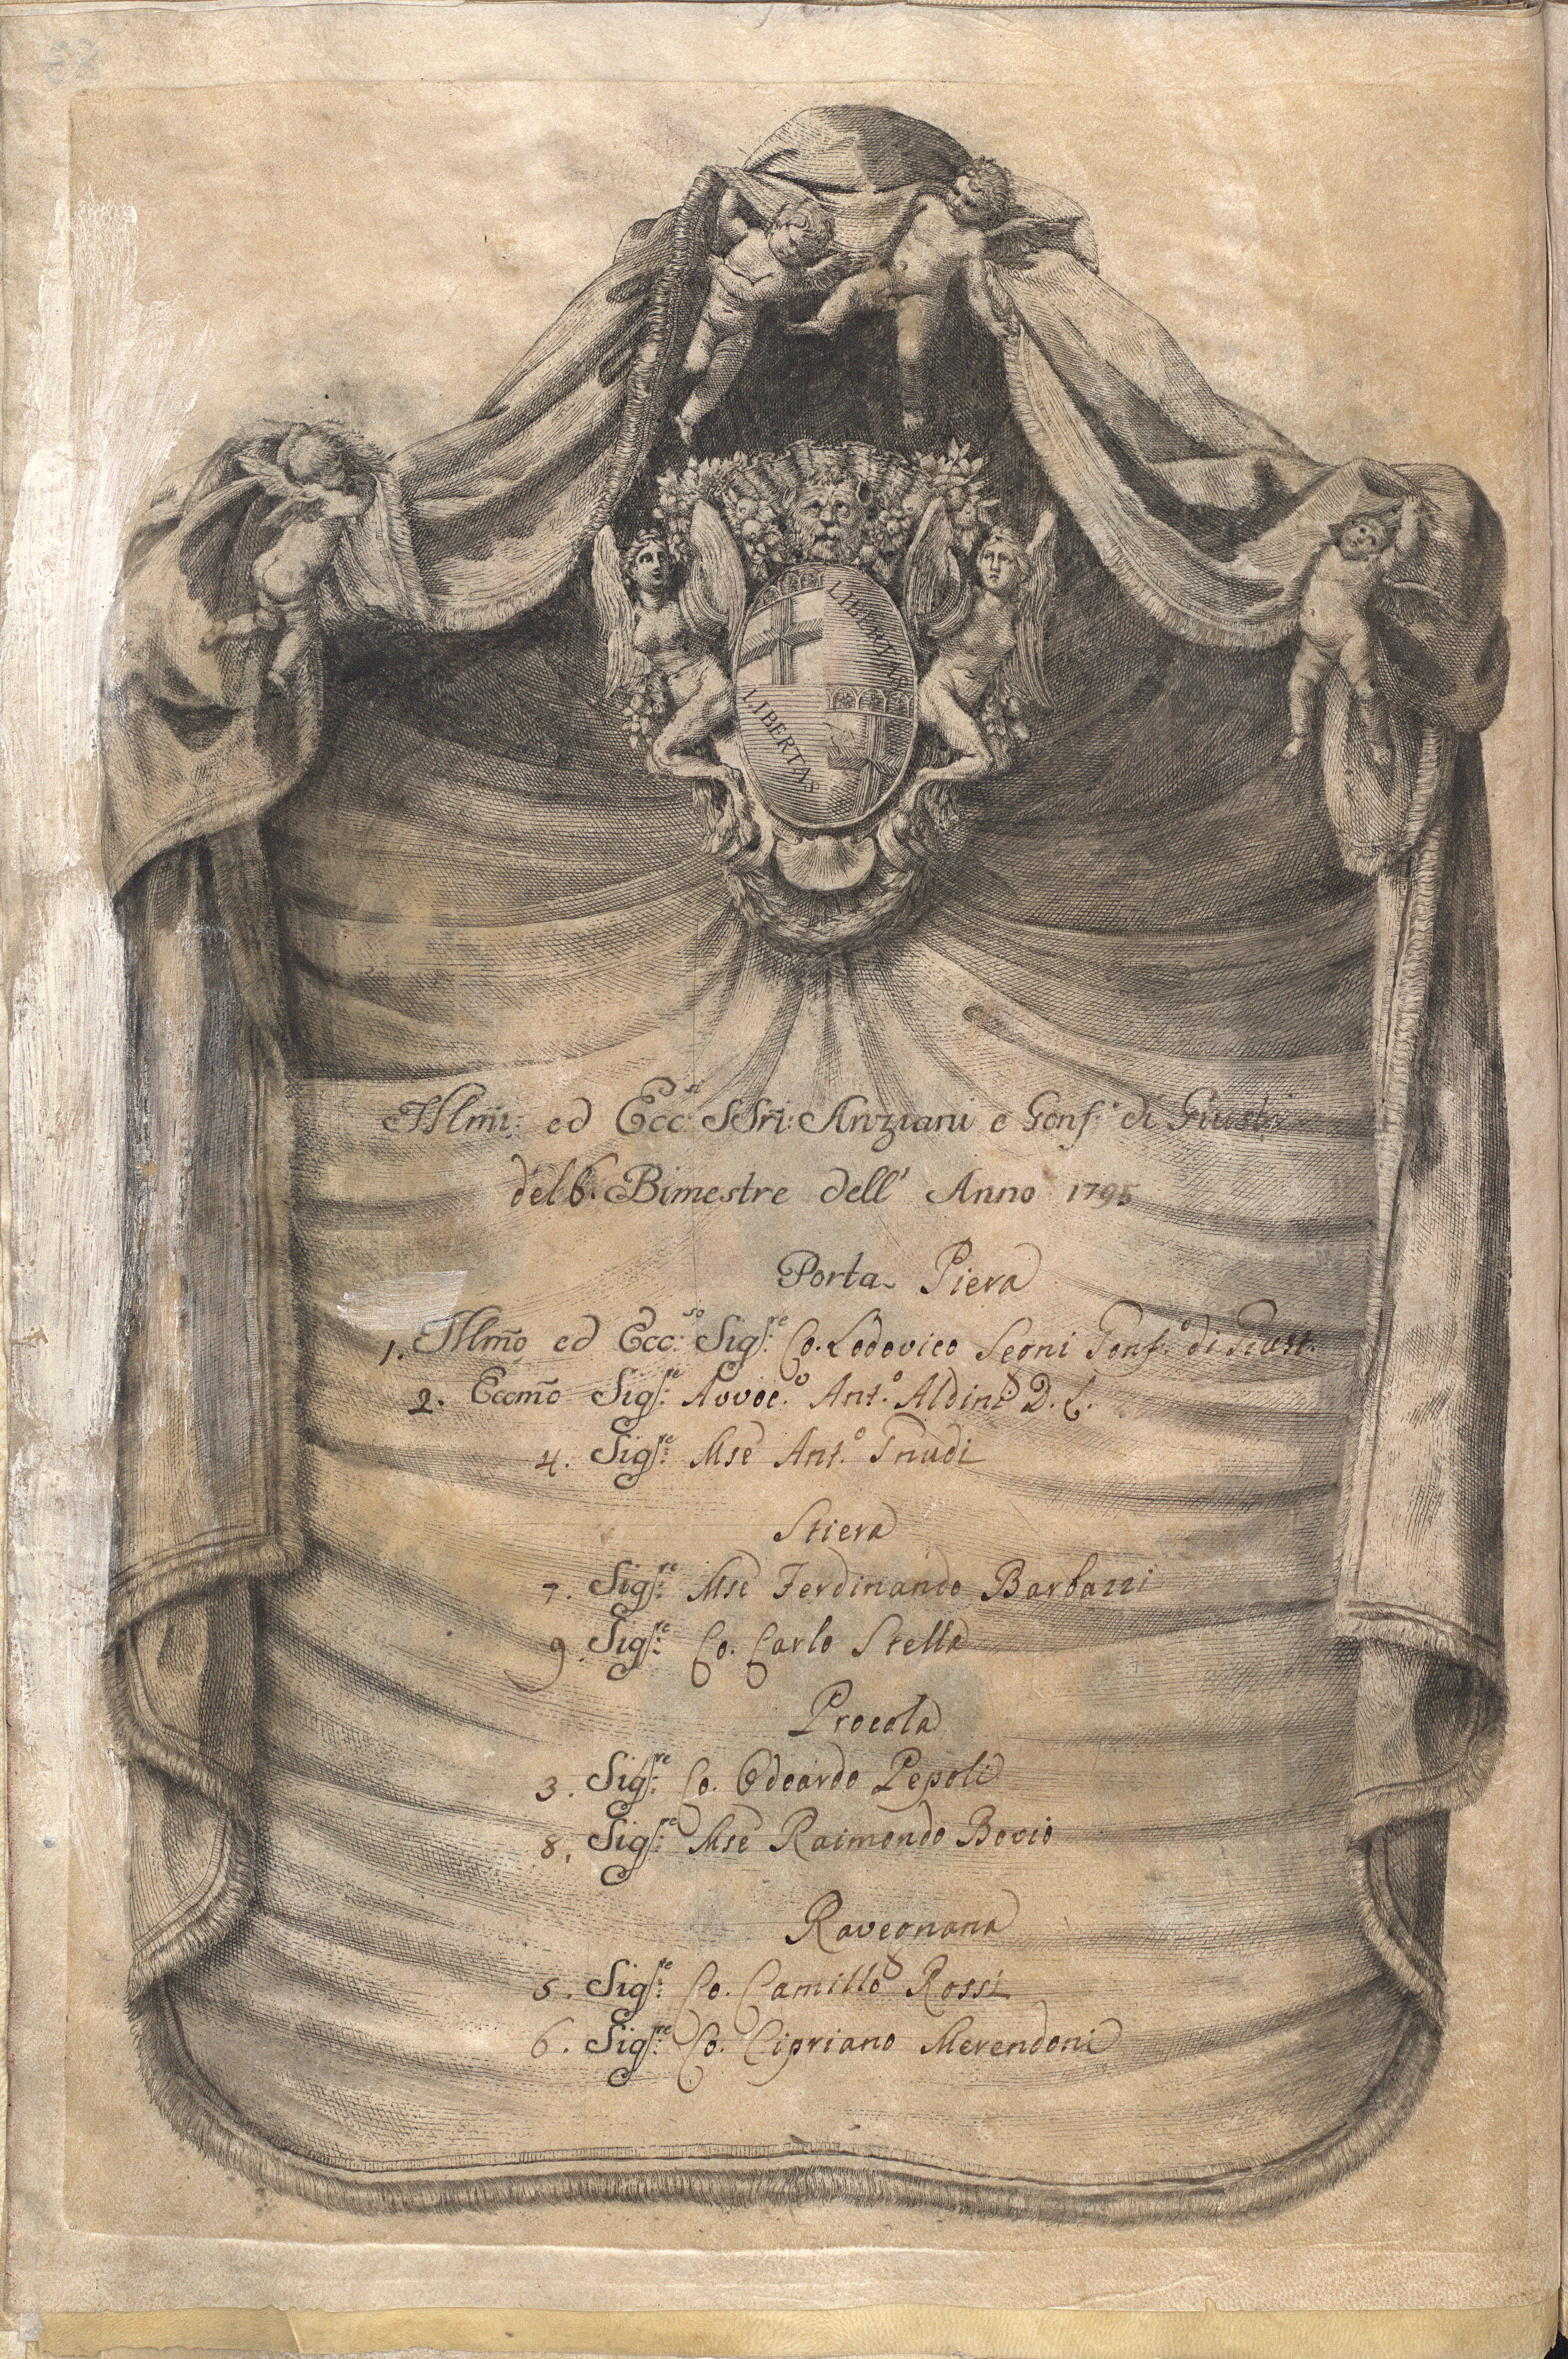 LIBERTAS
LIBERTAS
Illmi: ed Ecc:si SSri: Anziani e Gonf:i di Giustz:
del 6. Bimestre dell' Anno 1795
Porta Piera
1. Illmo ed Ecc:so Sigr:e Co. Lodovico Segni Gonf.o di Giust.
2. Eccmo Sigr:e Avvoc.o Ant.o Aldini D. C.
4. Sigr:e Mse Ant.o Gnudi
Stiera
7. Sigr:e Mse Ferdinando Barbazzi
9. Sigr:e Co. Carlo Stella
Procola
3. Sigr:e Co. Odoardo Pepoli
8. Sigr:e Mse Raimondo Bovio
Ravegnana
5. Sigr:e Co. Camillo Rossi
6. Sigr:e Co. Cipriano Merendoni